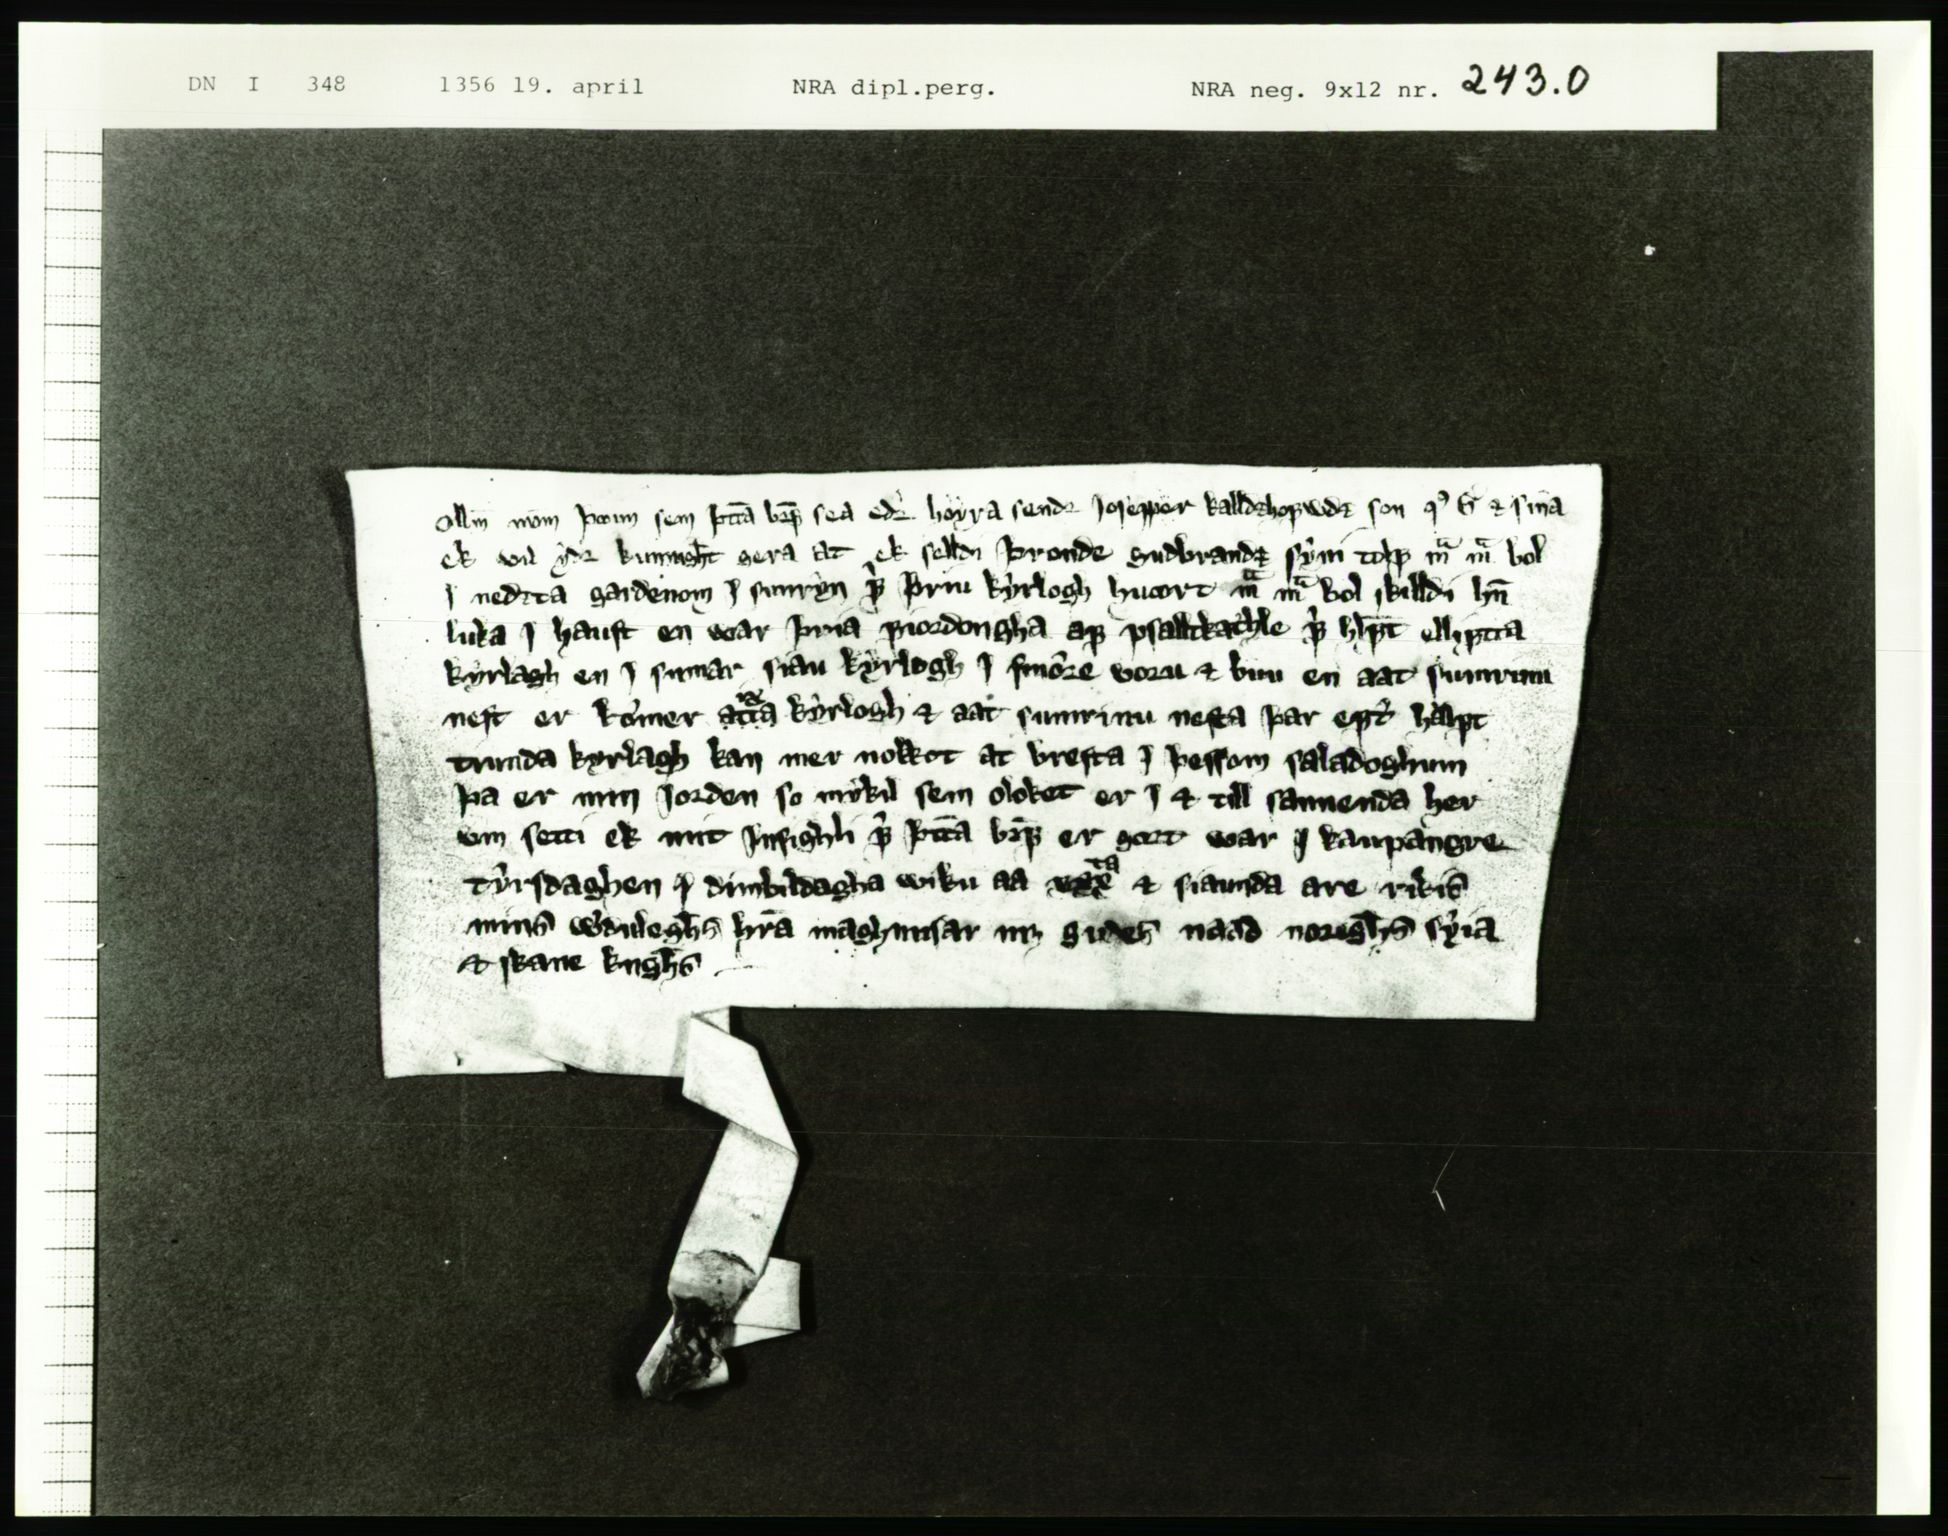 DN I 348 1356 19. april NRA dipl.perg. NRA neg. 9x12 nr. 243.0
ollm mom þæim sem þtta bref sea edr høyra sendr Joseppor kalldzhofwdz son q g & sina
ek vil ydr kunnight gera at ek selldi þronde gudbrandz syni tolf m m bol
J nedzta gardenom J sunryn þriu kyrlogh huært m m bol skilldi hn
luka J haust en war þrua fiordongha af psalltkathle ok hlft ellifta
kyrlagh en J sumar siau kyrlogh J smøre voru & buu en aat sumrinu
nest er kømer atta kyrlogh & aat sumrinu nesta þar eft halft
trunda kyrlagh kan mer nokkot at bresta J þessom saladoghum
þa er min Jorden so mykil sem oloket er J & till sannenda her
vm setti ek mit Jnsighli fr þtta brf er gort war J kaupangre
tyrsdaghen J dimbildagha wiku aa & siaunda are rikis
mins wyrduleghs hra maghnusar mz guds naad noreghs syia
& skane knghs